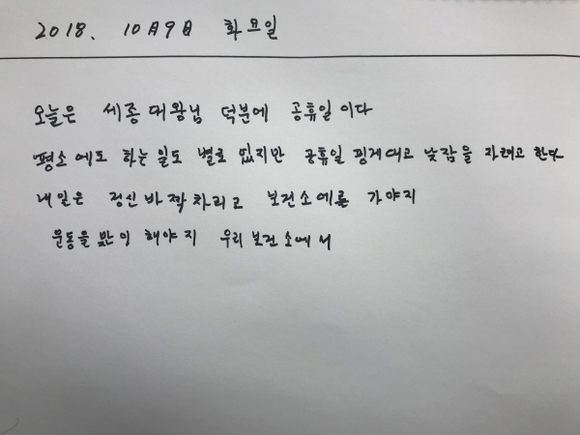 2018. 10月9日 화요일
오늘은 세종대왕님 덕분에 공휴일이다
평소에도 하는일도 별로 없지만 공휴일 핑게대고 낮잠을 자려고 한다
내일은 정신바짝차리고 보건소에를 가야지
운동을 많이 해야지 우리 보건소에서